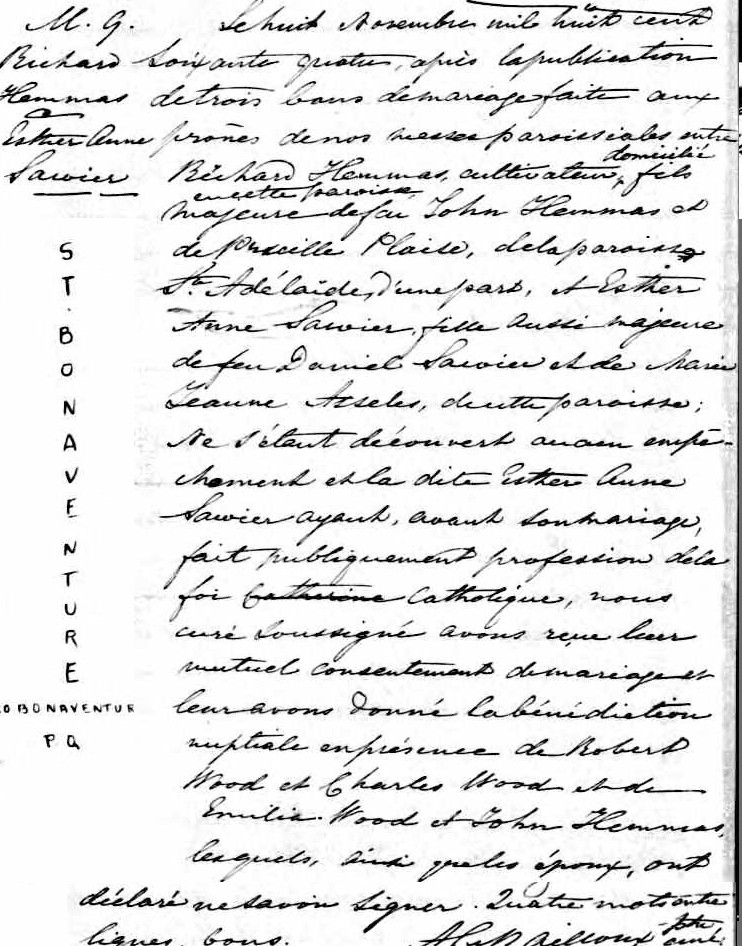 M. 9. Le huit Novembre mil huit cent
Richard soixante quatre, après la publication
Hemmas de trois bans de mariage faite aux
& Esther Anne prônes de nos messes paroissiales entre
Sawier Richard Hemmas, cultivateur, domicilié fils
en cette paroisse
majeure de feu John Hemmas et
de Priscille Plaise, de la paroisse
Ste Adélaïde, d'une part, et Esther
Anne Sawier, fille aussi majeure
de feu Daniel Sawier et de Marie
Jeanne Asseles, de cette paroisse;
Ne s'étant découvert aucun empê-
chement et la dite Esther Anne
Sawier ayant, avant son mariage,
fait publiquement profession de la
foi Catholique, nous
curé soussigné avons reçu leur
mutuel consentement de mariage et
leur avons donné la bénédiction
nuptiale en présence de Robert
Wood et Charles Wood et de
Emilia Wood et John Hemmas,
lesquels, ainsi que les époux, ont
déclaré ne savoir signer. Quatre mots entre
lignes, bons.
ST. BONAVENTURE
CO BONAVENTUR
P Q